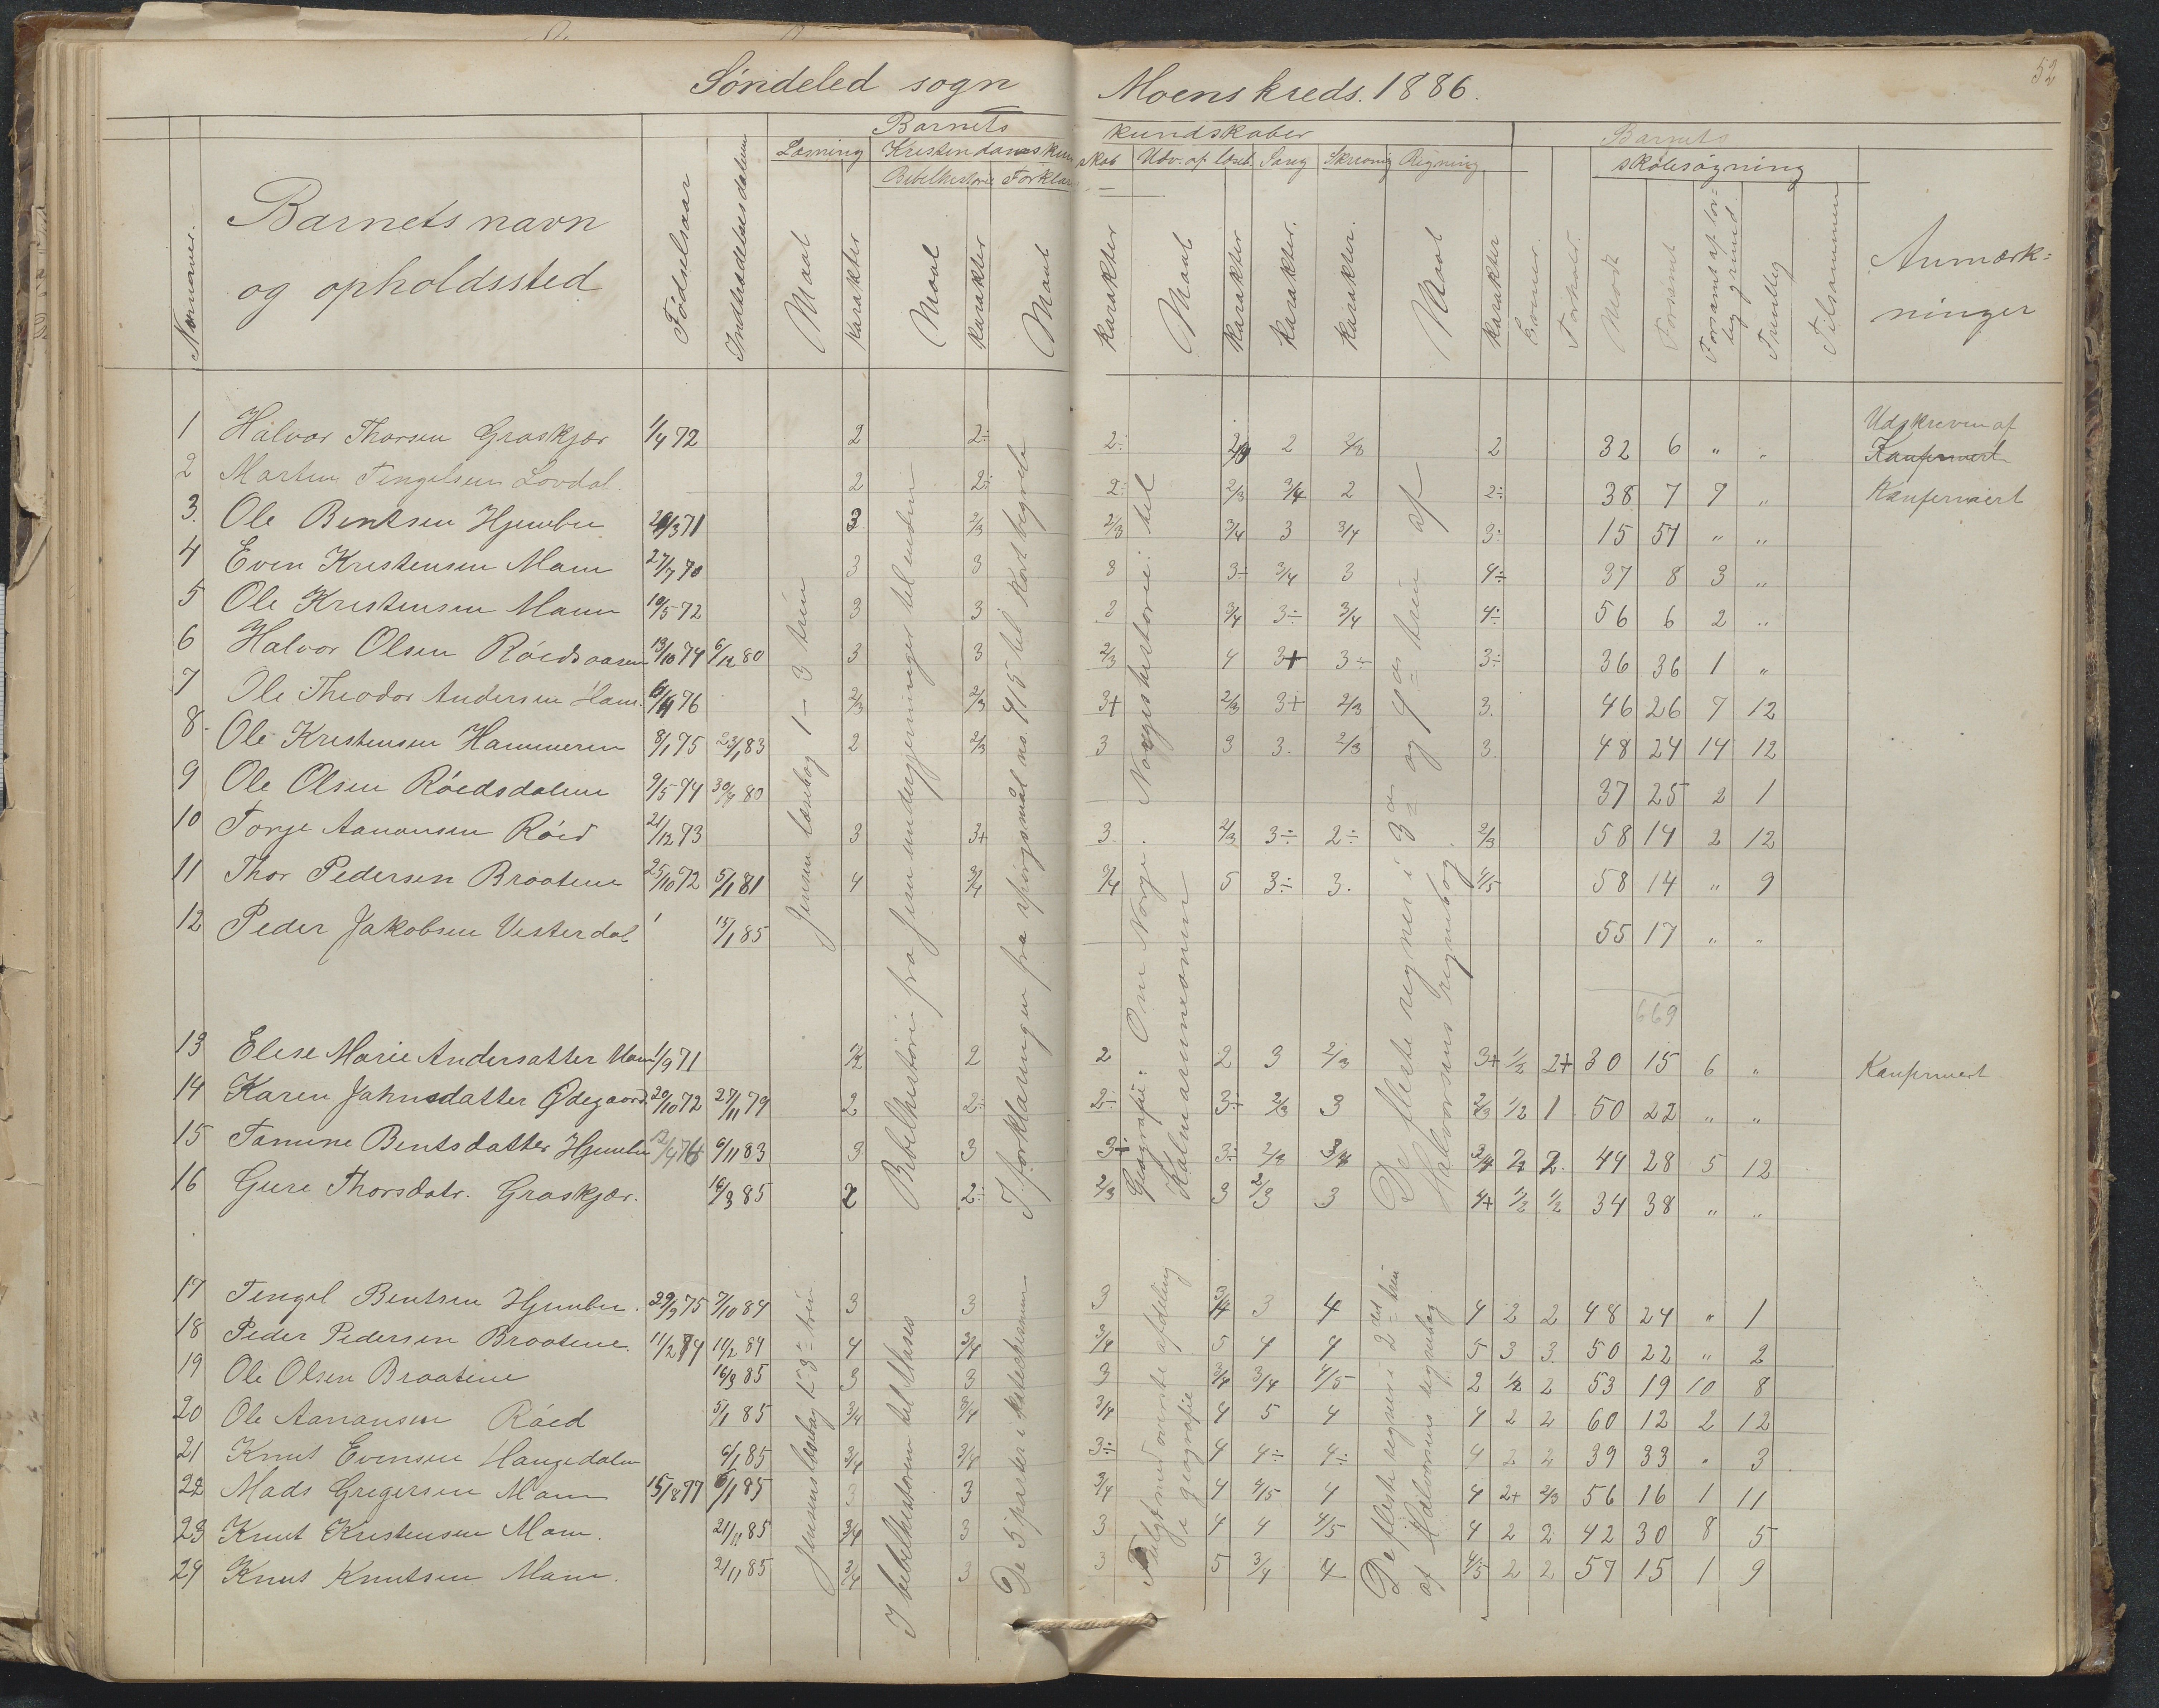 52
Søndeled sogn Moens kreds. 1886.
Barnets kundskaber Barnets
Læsning Kristendomskundskab Udv. af læseb. Sang Skrivning Regning skolesøgning
Bibelhistorie Forklar.
Nummer. Barnets navn og opholdssted Fødselsaar Indtrædelsesdatum Maal Karakter Maal Karakter Maal Karakter Maal Karakter Karakter. Karakter. Maal Karakter Evner. Forhold. Mødt Forsømt Forsømt af lovlig grund. Frivillig Tilsammen Anmærkninger
Udskreven af
1 Halvor Thorsen Graskjær 1/4 72 2 2÷ 2÷ 2/3 2 2/3 2 32 6 " " Konfirmert
2 Martin Tengelsen Lovdal. 2 2÷ 2÷ 2/3 3/4 2 2÷ 38 7 7 " Konfirmert
3. Ole Bentsen Hjembu 3 71 3. 2/3 2/3 3/4 3 3/4 3÷ 15 57 " "
4 Even Kristensen Moen 27/7 70 3 3 3 3÷ 3/4 3 4÷ 37 8 3 "
5 Ole Kristensen Moen 10/5 72 3 3 3 3/4 3÷ 3/4 4÷ 56 6 2 "
6 Halvor Olsen Røedsaasen 13/10 74 6/12 80 3 3 2/3 4 3+ 3÷ 3÷ 36 36 1 "
7 Ole Theodor Andersen 76 2/3 2/3 3+ 2/3 3+ 2/3 3. 46 26 7 12
8 Ole Kristensen Hammeren 8/1 75 23/1 83 2 2/3 3 3 3. 2/3 3. 48 24 14 12
9 Ole Olsen Røedsdalen 9/5 74 80 37 25 2 1
10 Torje Aanonsen Røed 21/12 73 3 3+ 3. 2/3 3÷ 2÷ 2/3 58 14 2 12
11 Thor Pedersen Braatene 25/10 72 5/1 81 4 3/4 3/4 5 3÷ 3. 4/5 58 14 " 9
12 Peder Jakobsen Vesterdal 15/1 85 55 17 " "
669
13 Elise Marie Andersatter 1/9 71 1/2 2 2 2 3 2/3 3+ 1/2 2+ 30 15 6 " Konfirmert
14 Karen Jahnsdatter Ødegaard. 20/10 72 27/11 79 2 2÷ 2÷ 3÷ 2/3 3 2/3 1/2 1 50 22 " "
15 Tomine Bentsdatter Hjembu 6/11 83 3 3 3÷ 3÷ 2/3 3/4 3/4 2 2. 44 28 5 12
16 Gure Thorsdatr. Graskjær. 16/3 85 2 2÷ 2/3 3 2/3 3 4+ 1/2 1/2 34 38 " "
17 Tengel Bentsen Hjembu. 29/9 75 7/10 84 3 3 3 3/4 3 4 4 2 2 48 24 " 1
18 Peder Pedersen Braatene. 11/2 74 11/2 84 4 3/4 3/4 5 4 4 5 3 3. 50 22 " 2
19 Ole Olsen Braatene 16/3 85 3 3 3 3/4 3/4 4/5 2 1/2 2 53 19 10 8
20 Ole Aanonsen Røed 5/1 85 3/4 3/4 3/4 4 5 4 4 2 2 60 12 2 12
21 Knut Evensen Haugedalen 6/1 85 3/4 3/4 3÷ 4 4÷ 4÷ 4 2 2 39 33 " 3
22 Mads Gregersen Moen 15/8 77 6/1 85 3 3 3/4 4 4/5 4 4 2+ 2/3 56 16 1 11
23 Knut Kristensen Moen. 21/11 85 3/4 3 3 4 4 4/5 4 2 2 42 30 8 5
24 Knut Knutsen Moen. 21/11 85 3/4 3 3 5 3/4 4 4/5 2 2 57 15 1 9
Jensens læsebog 1–3 trin
Bibelhistorie fra Jesu undergjerninger til enden
I forklaringen fra spørgsmål no. 415 til Kort begreb
Geografie: Om Norge. Norgeshistorie: til Kalmarunionen
De fleste regner i 3die og 4de trin af Halvorsens regnebog
Jensens læsebog 1–3 trin
I bibelhistorien til Moses
De 5 parter i katechismen
Fulgt med øverste afdeling i geografie
De fleste regner i 2det trin af Halvorsens regnebog